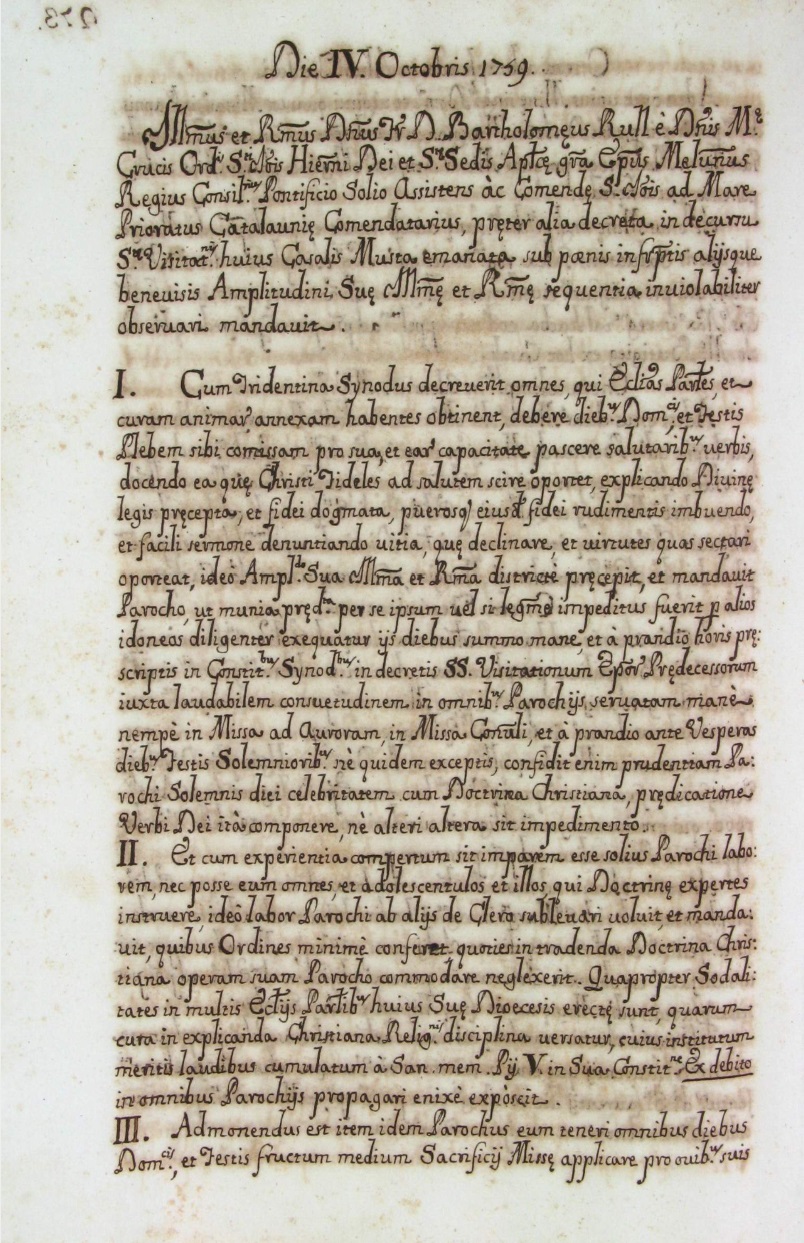 273.
Die IV. Octobris 1759.
Illm̃us et Rm̃us Dñus Fr̃ D. Bartholomęus Rull è Dñis M.ę
Crucis Ord.s S.ti Jõis Hierñi Dei et S.tę Sedis Aplicę grã Epũs Meliteñus
Regius Consil.rius Pontificio Solio Assistens àc Comendę S.ti Jõis ad Mare
Prioratus Catalaunię Comendatarius, pręter alia decreta in decursu
S.tę Visitat.nis huius Casalis Musta emanata sub pœnis infrp̃tis alijsque
benevisis Amplitudini Suę Illm̃ę et Rm̃ę sequentia inuiolabiliter
obseruari mandauit.
I. Cum Tridentina Synodus decreuerit omnes, qui Ecl̃ias Par̃les, et
curam animar' annexam habentes obtinent, debere dieb.us Dom.cis, et Festis
Plebem sibi comissam pro sua, et ear' capacitate pascere salutarib.us uerbis,
docendo ea quę Christi Fideles ad salutem scire oportet, explicando Diuinę
legis pręcepta, et fidei dogmata, puerosq' eiusd̃ fidei rudimentis imbuendo,
et facili sermone denuntiando uitia, quę declinare, et uirtutes quas sectari
oporteat, ideò Ampl.do Sua Illm̃a et Rm̃a districtè pręcepit, et mandauit
Parocho, ut munia pręd.ta per se ipsum uel si legm̃è impeditus fuerit p alios
idoneos diligenter exequatur ijs diebus summo mane, et à prandio horis prę:
scriptis in Constit.bus Synod.bus in decretis SS. Visitationum Epor' Prędecessorum
iuxta laudabilem consuetudinem in omnib.us Parochijs seruatam manè
nempè in Missa ad Auroram, in Missa Conũali, et à prandio ante Vesperas
dieb.us Festis Solemniorib.us nè quidem exceptis, confidit enim prudentiam Pa:
rochi Solemnis diei celebritatem cum Doctrina Christiana, prędicatione
Verbi Dei ità componere, nè alteri altera sit impedimento.
II. Et cum experientia compertum sit imparem esse solius Parochi labo:
rem, nec posse eum omnes, et adolescentulos et illos, qui Doctrinę expertes
instruere, ideò labor Parochi ab alijs de Clero subleuari uoluit, et manda:
uit, quibus Ordines minimè conferet quoties in tradenda Doctrina Chris:
tiana operam suam Parocho commodare neglexerit. Quapropter Sodali:
tates in multis Ecl̃ijs Par̃lib.us huius Suę Dioecesis erectę sunt, quarum
cura in explicanda Christiana Relig.nis disciplina uersatur, cuius institutum
meritis laudibus cumulatum à San. mem. Pij V. in Sua Constit.ne Ex debito
in omnibus Parochijs propagari enixè exposcit.
III. Admonendus est item idem Parochus eum teneri omnibus diebus
Dom.cis, et Festis fructum medium Sacrificij Missę applicare pro ouib.us suis